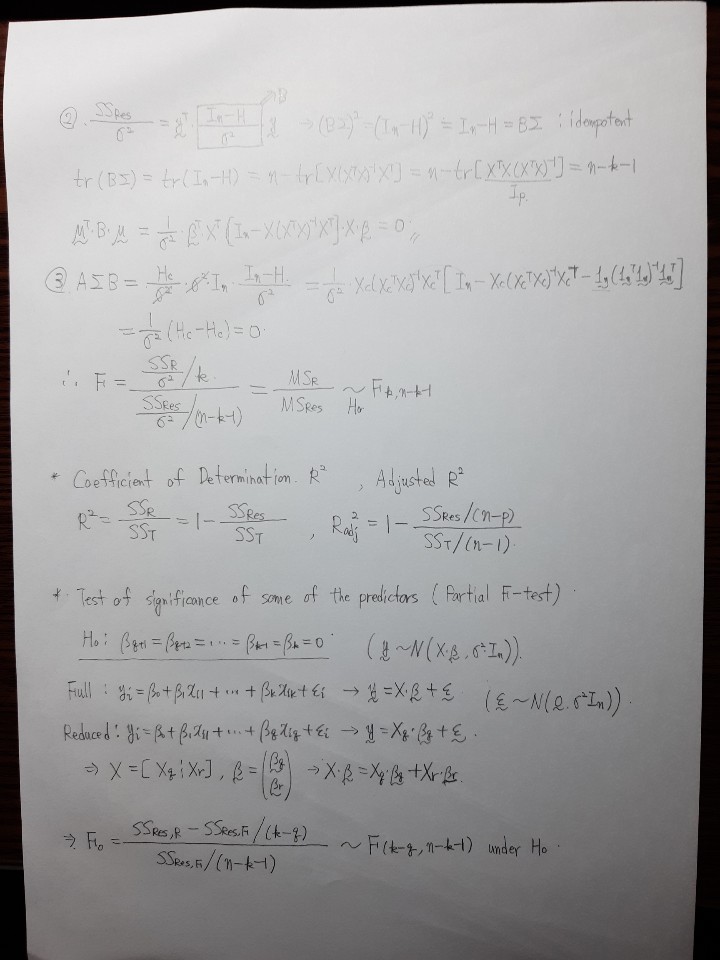 ② · SSRes/σ² = y̰ᵀ · (Iₙ-H)/σ² · y̰ →B → (BΣ)² = (Iₙ-H)² = Iₙ-H = BΣ : idempotent
tr(BΣ) = tr(Iₙ-H) = n - tr[X(XᵀX)⁻¹Xᵀ] = n - tr[XᵀX(XᵀX)⁻¹] = n-k-1
Ip.
μ̰ᵀ·B·μ̰ = 1/σ² · β̰ᵀ·Xᵀ{Iₙ-X(XᵀX)⁻¹Xᵀ}·X·β̰ = 0 〃
③ AΣB = Hc/σ² · σ²·Iₙ · (Iₙ-H)/σ² = 1/σ² · Xc(XcᵀXc)⁻¹Xcᵀ[Iₙ - Xc(XcᵀXc)⁻¹Xcᵀ - 1̰ₙ(1̰ₙᵀ1̰ₙ)⁻¹1̰ₙᵀ]
= 1/σ² (Hc-Hc) = 0.
∴ F = (SSR/σ² / k) / (SSRes/σ² / (n-k-1)) = MSR/MSRes ~ F k, n-k-1
H₀
* Coefficient of Determination. R² , Adjusted R²
R² = SSR/SST = 1 - SSRes/SST , R²adj = 1 - (SSRes/(n-p))/(SST/(n-1)).
* Test of significance of some of the predictors (Partial F-test) ·
H₀: βq+1 = βq+2 = ··· = βk-1 = βk = 0 (y̰ ~ N(X·β̰, σ²Iₙ)).
Full : yi = β₀ + β₁xi1 + ··· + βkxik + εi → y̰ = X·β̰ + ε̰ (ε̰ ~ N(0̰, σ²Iₙ)).
Reduced : yi = β₀ + β₁xi1 + ··· + βqxiq + εi → y̰ = Xq·β̰q + ε̰ .
⇒ X = [Xq ⋮ Xr], β̰ = (β̰q β̰r) → X·β̰ = Xq·β̰q + Xr·β̰r.
⇒ F₀ = (SSRes,R - SSRes,F /(k-q)) / (SSRes,F/(n-k-1)) ~ F(k-q, n-k-1) under H₀ ·